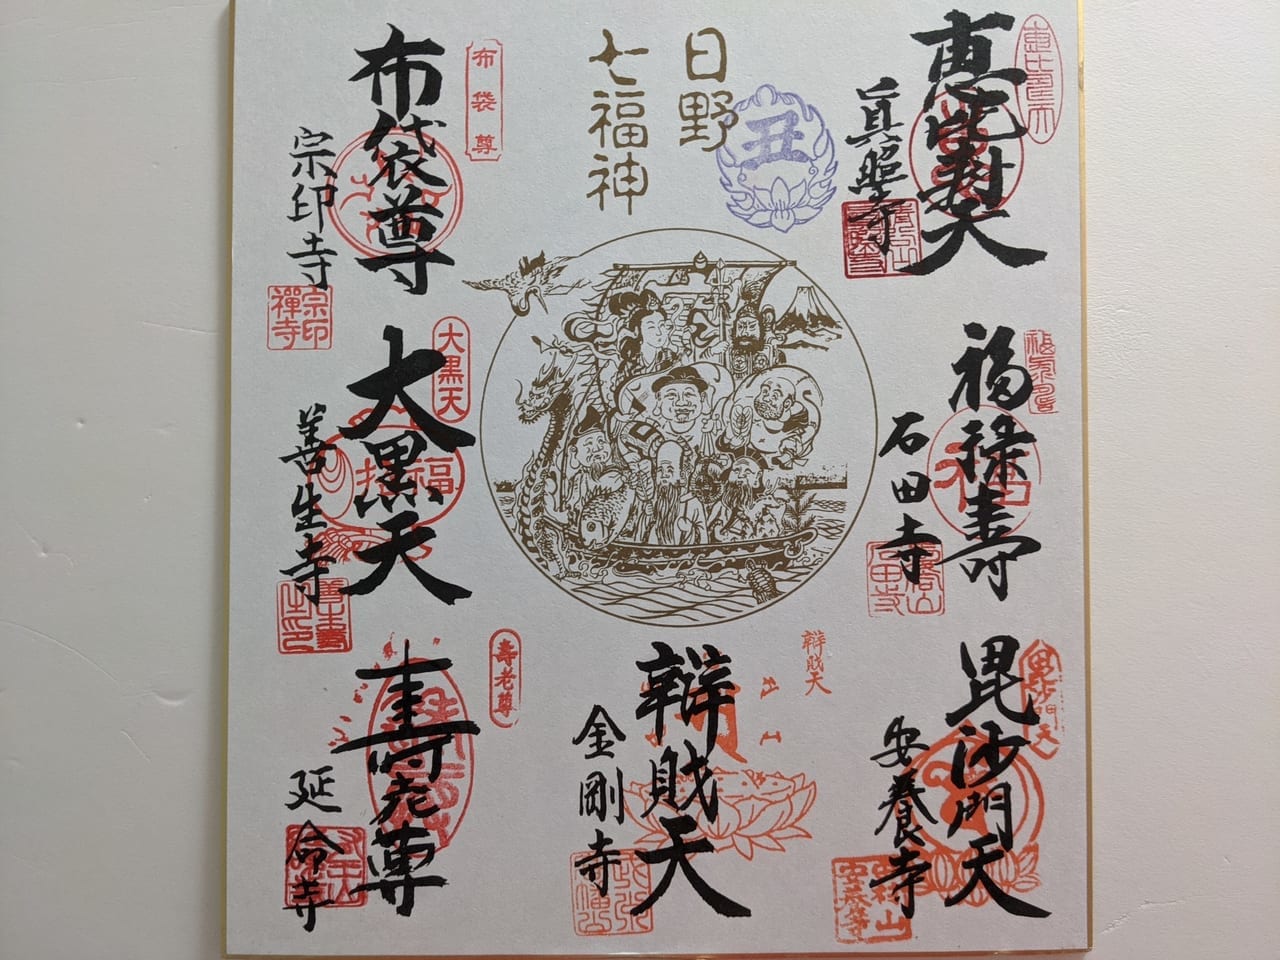 日野
七福神
丑
恵比寿天
眞照寺
福禄壽
石田寺
毘沙門天
毘沙門天
安養寺
安養寺
辯財天
辯財天
金剛寺
布袋尊
布袋尊
宗印寺
宗印禅寺
大黒天
大黒天
招福
善生寺
壽老尊
壽老尊
延命寺